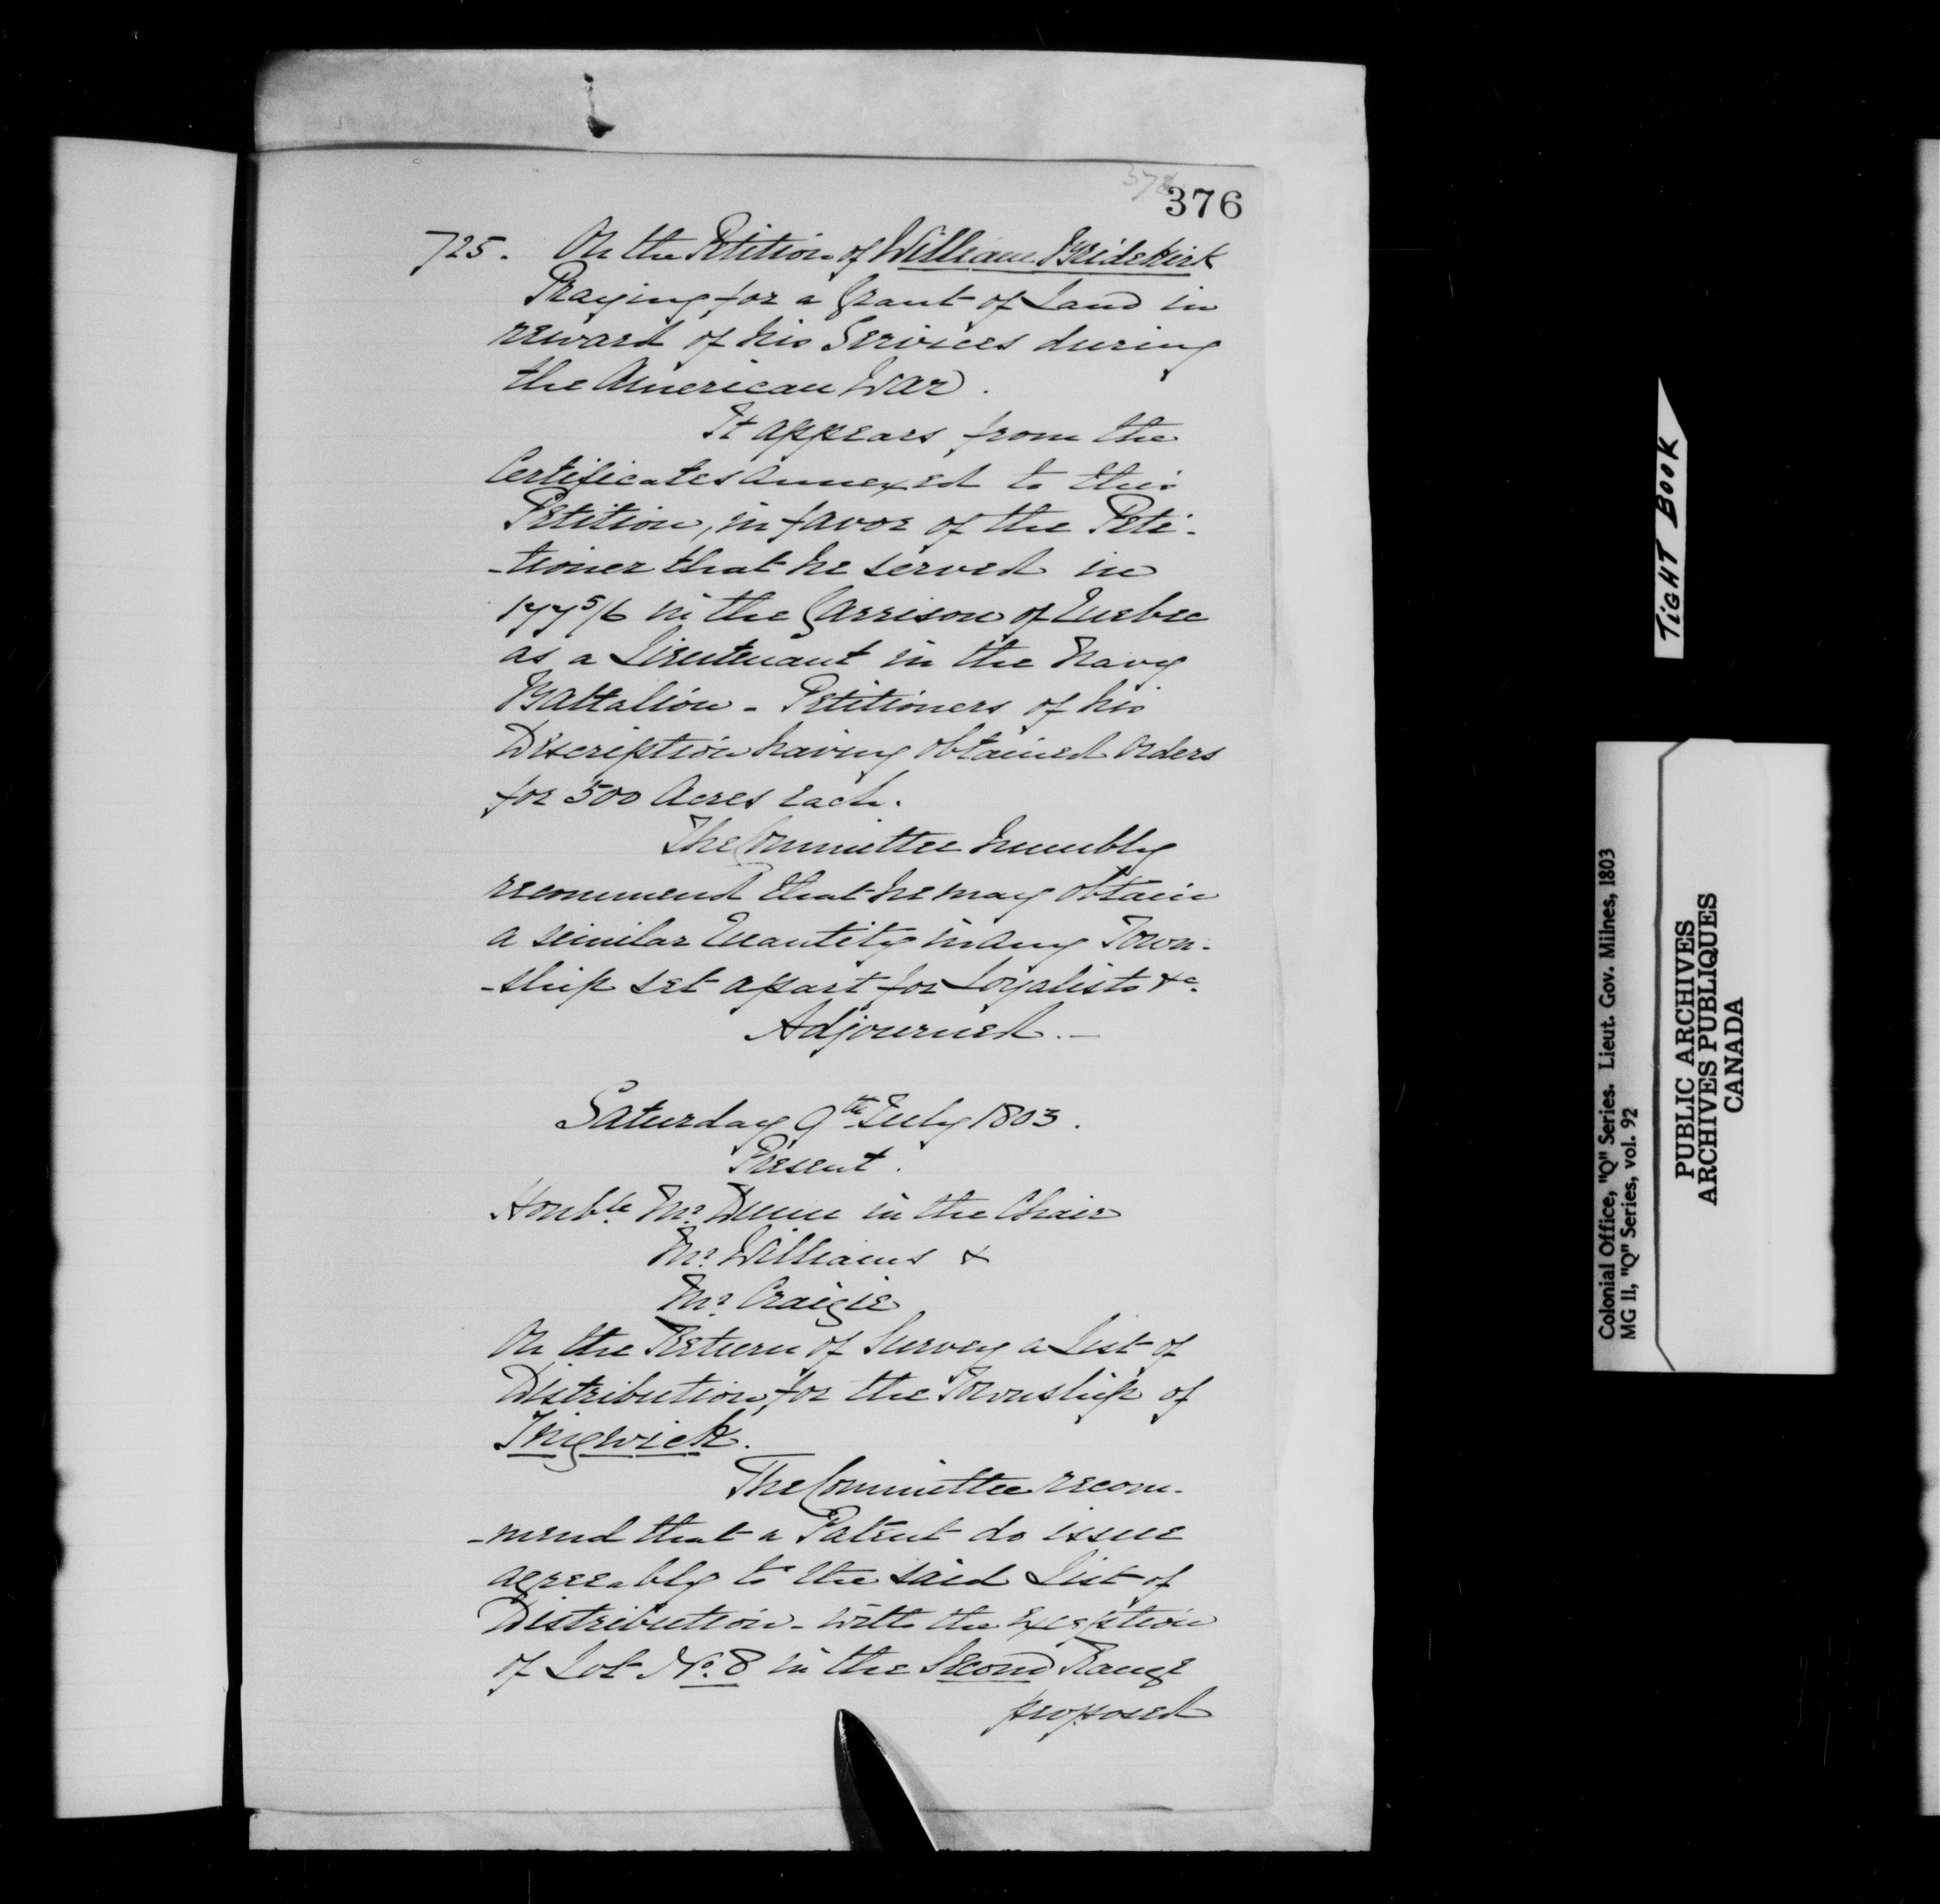 376
725. On the Petition of William Bridekirk
Praying for a Grant of Land in
reward of his Services during
the American War.
It appears from the
Certificates annexed to this
Petition, in favor of the Peti-
-tioner that he served in
1775/6 in the Garrison of Quebec
as a Lieutenant in the Navy
Battalion - Petitioners of his
Discription having obtained Orders
for 500 Acres each.
The Committee humbly
recommend that he may obtain
a similar Quantity in any Town-
-ship set apart for Loyalists &c.
Adjourned. -
Saturday 9th July 1803.
Present.
Honble Mr. Dunn in the Chair
Mr. Williams &
Mr. Craigie
On the Return of Survey a List of
Distribution for the Township of
Tingwick.
The Committee recom-
-mend that a Patent do issue
agreeably to the said List of
Distribution - with the exception
of Lot No. 8 in the Second Range
proposed
TIGHT BOOK
Colonial Office, "Q" Series. Lieut. Gov. Milnes, 1803
MG 11, "Q" Series, vol. 92
PUBLIC ARCHIVES
ARCHIVES PUBLIQUES
CANADA